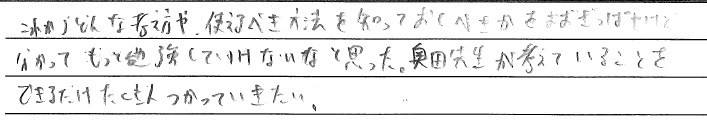 これからどんな考え方や、使えるべき方法を知っておくべきかをまだざっぱだけど
分かってもっと勉強していけないなと思った。奥田先生が考えていることを
できるだけたくさんつかっていきたい、